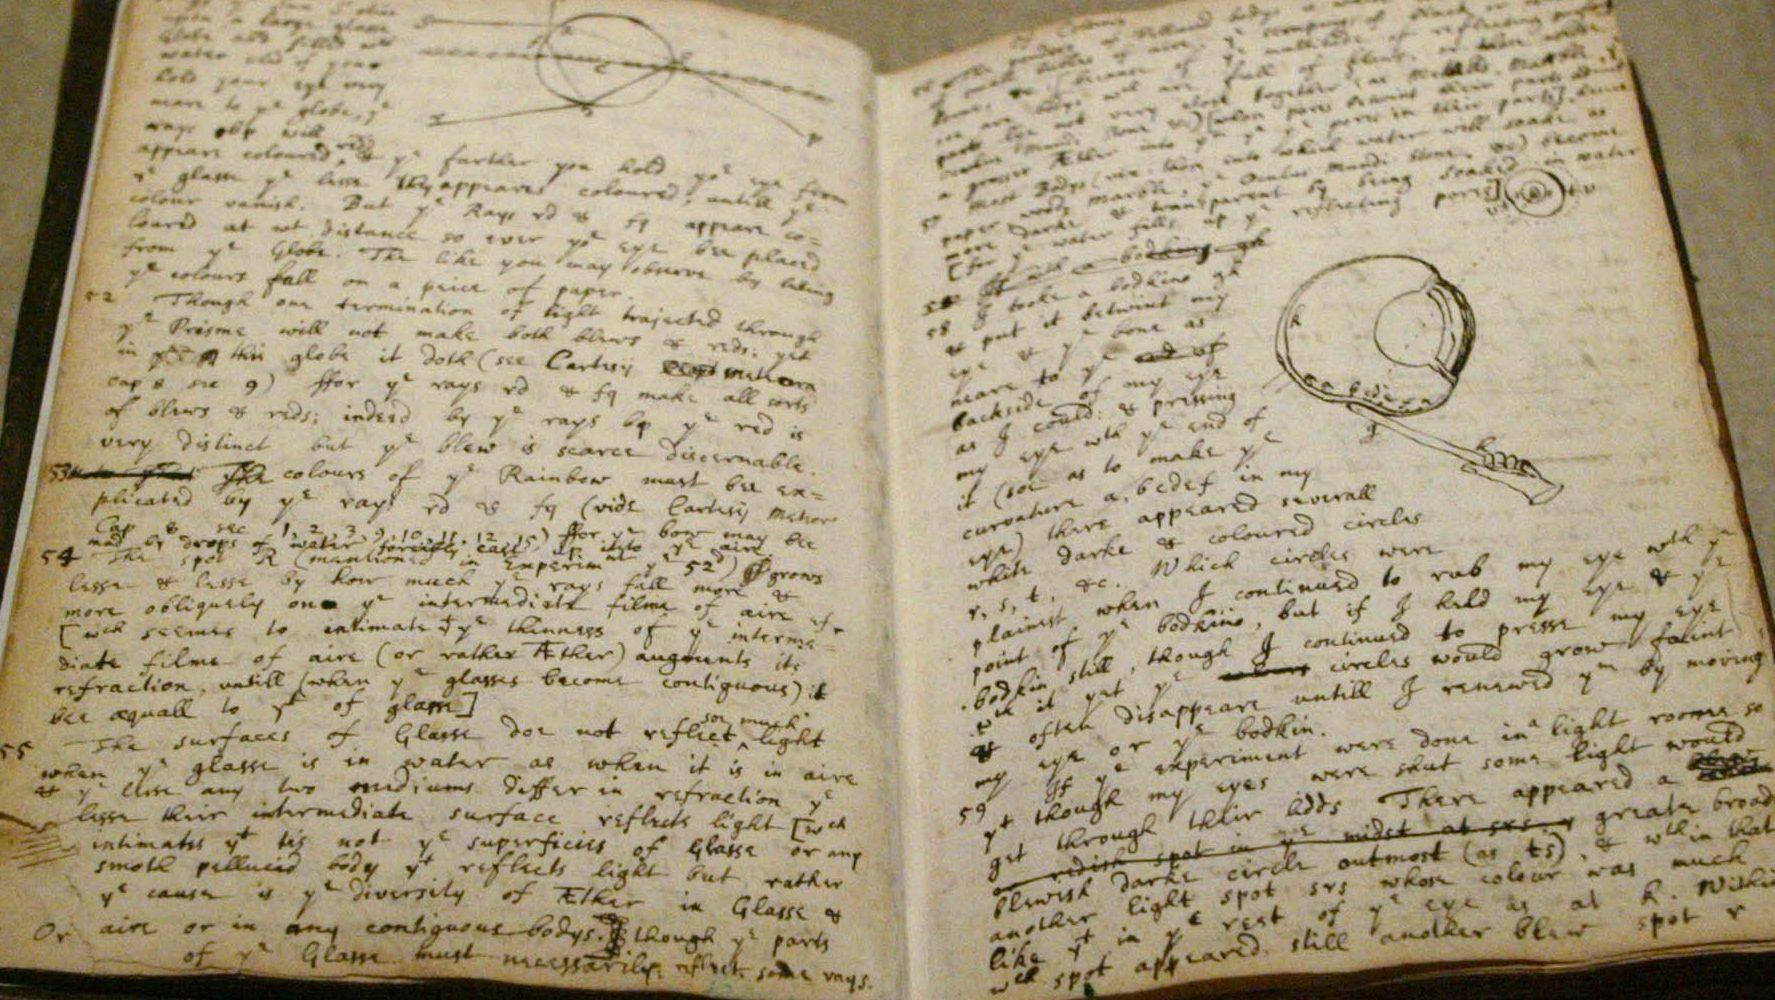 upon a large glasse
Globe and filled wth
water and if your
hold your eye very
neare to ye globe, ye
rays will
appeare coloured red, & ye farther you hold yor eye from
ye glasse ye lesse they appeare coloured, untill ye
colour vanish. But ye Rays rd & fq appeare co=
loured at wt distance so ever yor eye bee placed
from ye Globe. The like you may observe by letting
ye colours fall on a peice of paper.
52 Though one termination of light trajected through
ye Prisme will not make both blews & reds; yet
in this globe it doth (see Cartesij Meteora
cap 8 sec 9) ffor ye rays rd & fq make all sorts
of blews & reds; indeed by ye rays bp ye red is
very distinct but ye blew is scarce discernable.
53 The colours of ye Rainbow must bee ex=
plicated by ye rays rd & fq (vide Cartesij Meteor
Cap 8 sec 1, 2, 3, 9, 10, 11, 12, 15) ffor ye bow may bee
made by drops of water forcibly cast up into ye aire.
54 The spot R (mentioned in Experimnt ye 52d) grows
lesse & lesse by how much ye rays fall more &
more obliquely on ye intermediate filme of aire
[wch seemes to intimate yt ye thinness of ye interme=
diate filme of aire (or rather Æther) augments its
refraction, untill (when ye glasses become contiguous) it
bee æquall to yt of glasse]
55 The surfaces of Glasse doe not reflect soe much light
when ye glasse is in water as when it is in aire
& ye lesse any two mediums differ in refraction ye
lesse their intermediate surface reflects light [wch
intimates yt tis not ye superficies of Glasse or any
smoth pellucid body yt reflects light but rather
ye cause is ye diversity of Æther in Glasse &
aire or in any contiguous bodys. though ye parts
Or of ye Glasse must necessarily reflect some rays.
of reflecting
parts lye not very close together (as Metalls, Marble, ye
Oculus Mundi stone &c) [whose pores betwixt their parts admit
a grosser Æther into ym yn ye pores in their parts], hence
57 Most Bodys (viz: those into which water will soake as
paper, wood, marble, ye Oculus Mundi stone, &c) become
more darke & transparent by being soaked in water
[for ye water fills up ye reflecting pores]
58 I tooke a bodkine gh
& put it betwixt my
eye & ye bone as
neare to ye
backside of my eye
as I could: & pressing
my eye wth ye end of
it (soe as to make ye
curvature a, bcdef in my
eye) there appeared severall
white darke & coloured circles
r, s, t, &c. Which circles were
plainest when I continued to rub my eye wth ye
point of ye bodkine, but if I held my eye & ye
bodkin still, though I continued to presse my eye
wth it yet ye circles would grow faint
& often disappeare untill I renewed ym by moving
my eye or ye bodkin.
59 If ye experiment were done in a light roome so
yt though my eyes were shut some light would
get through their lidds There appeared a greate broad
blewish darke circle outmost (as ts), & wth in that
another light spot srs whose colour was much
like yt in ye rest of ye eye as at k. Within
wch spot appeared still another blew spot r